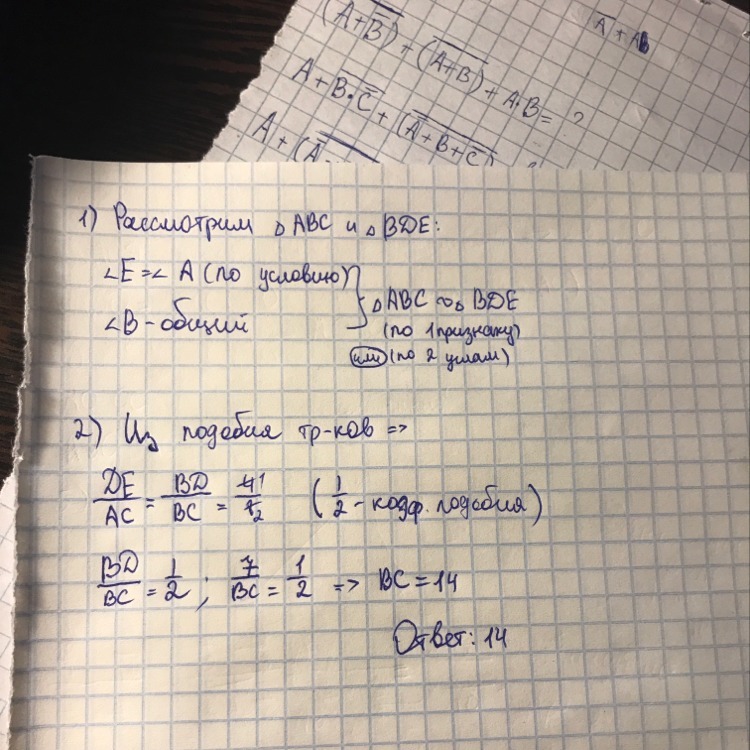 (A+B̅̅) + (A̅+̅B̅) + A·B = ?
A̅ + AB
A + B·C̅̅ + (A̅+B+C̅̅)
A + (A
1) Рассмотрим △ABC и △BDE:
∠E=∠A (по условию)
∠B - общий
} △ABC ∾ △BDE
(по 1 признаку)
или (по 2 углам)
2) Из подобия тр-ков =>
DE/AC = BD/BC = 4̶1/2 (1/2 - коэф. подобия)
BD/BC = 1/2 ; 7/BC = 1/2 => BC = 14
Ответ: 14